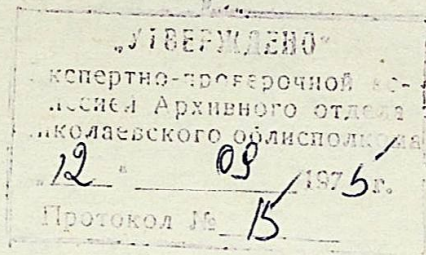 „УТВЕРЖДЕНО"
кспертно-проверочной ко-
иссией Архивного отдела
иколаевского облисполкома
„12" 09 1975 г.
Протокол № 15